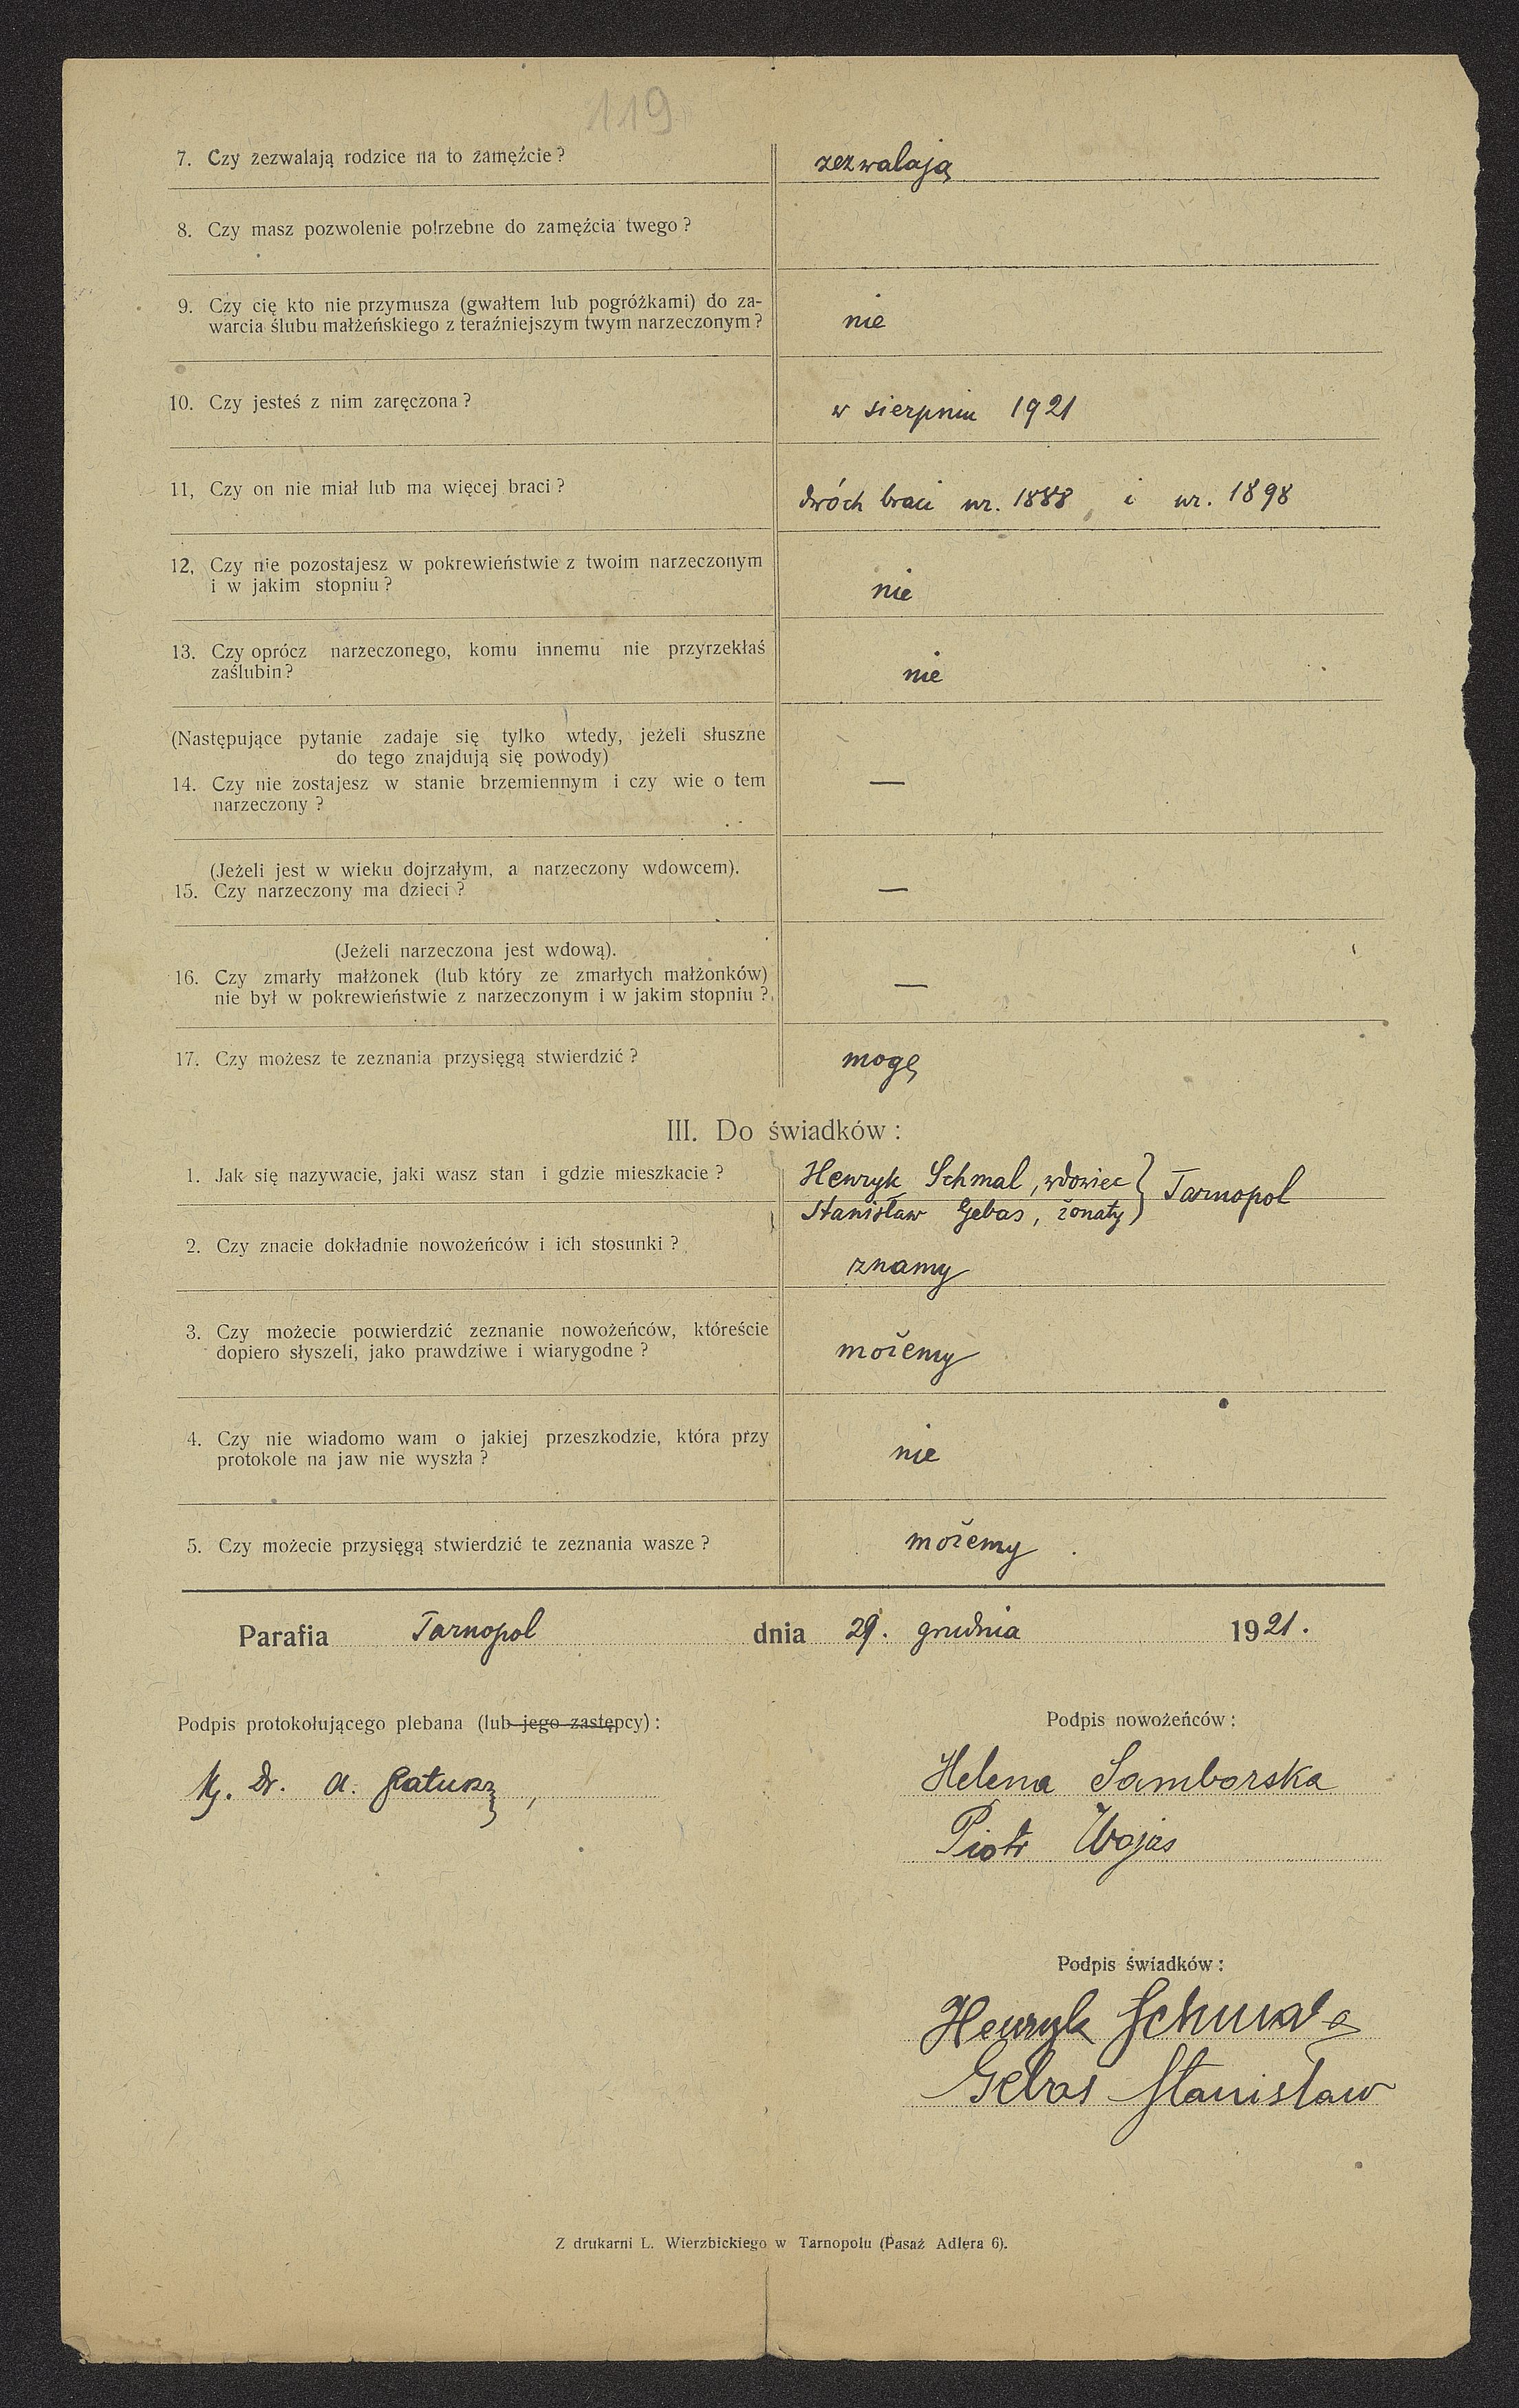 119
7. Czy zezwalają rodzice na to zamęźcie? zezwalają
8. Czy masz pozwolenie potrzebne do zamęźcia twego?
9. Czy cię kto nie przymusza (gwałtem lub pogróżkami) do za-
warcia ślubu małżeńskiego z teraźniejszym twym narzeczonym? nie
10. Czy jesteś z nim zaręczona? w sierpniu 1921
11, Czy on nie miał lub ma więcej braci? dwóch braci ur. 1888, i ur. 1898
12, Czy nie pozostajesz w pokrewieństwie z twoim narzeczonym
i w jakim stopniu? nie
13. Czy oprócz narzeczonego, komu innemu nie przyrzekłaś
zaślubin? nie
(Następujące pytanie zadaje się tylko wtedy, jeżeli słuszne
do tego znajdują się powody)
14. Czy nie zostajesz w stanie brzemiennym i czy wie o tem —
narzeczony?
(Jeżeli jest w wieku dojrzałym, a narzeczony wdowcem).
15. Czy narzeczony ma dzieci? —
(Jeżeli narzeczona jest wdową).
16. Czy zmarły małżonek (lub który ze zmarłych małżonków)
nie był w pokrewieństwie z narzeczonym i w jakim stopniu? —
17. Czy możesz te zeznania przysięgą stwierdzić? mogę
III. Do świadków:
1. Jak się nazywacie, jaki wasz stan i gdzie mieszkacie? Henryk Schmal, wdowiec } Tarnopol
Stanisław Gebas, żonaty
2. Czy znacie dokładnie nowożeńców i ich stosunki? znamy
3. Czy możecie potwierdzić zeznanie nowożeńców, któreście
dopiero słyszeli, jako prawdziwe i wiarygodne? możemy
4. Czy nie wiadomo wam o jakiej przeszkodzie, która przy
protokole na jaw nie wyszła? nie
5. Czy możecie przysięgą stwierdzić te zeznania wasze? możemy.
Parafia Tarnopol dnia 29. grudnia 1921.
Podpis protokołującego plebana (lub jego zastępcy): Podpis nowożeńców:
Dr. A. Helena Samborska
Piotr Wojas
Podpis świadków:
Henryk Schmal
Gebas Stanisław
Z drukarni L. Wierzbickiego w Tarnopolu (Pasaż Adlera 6).